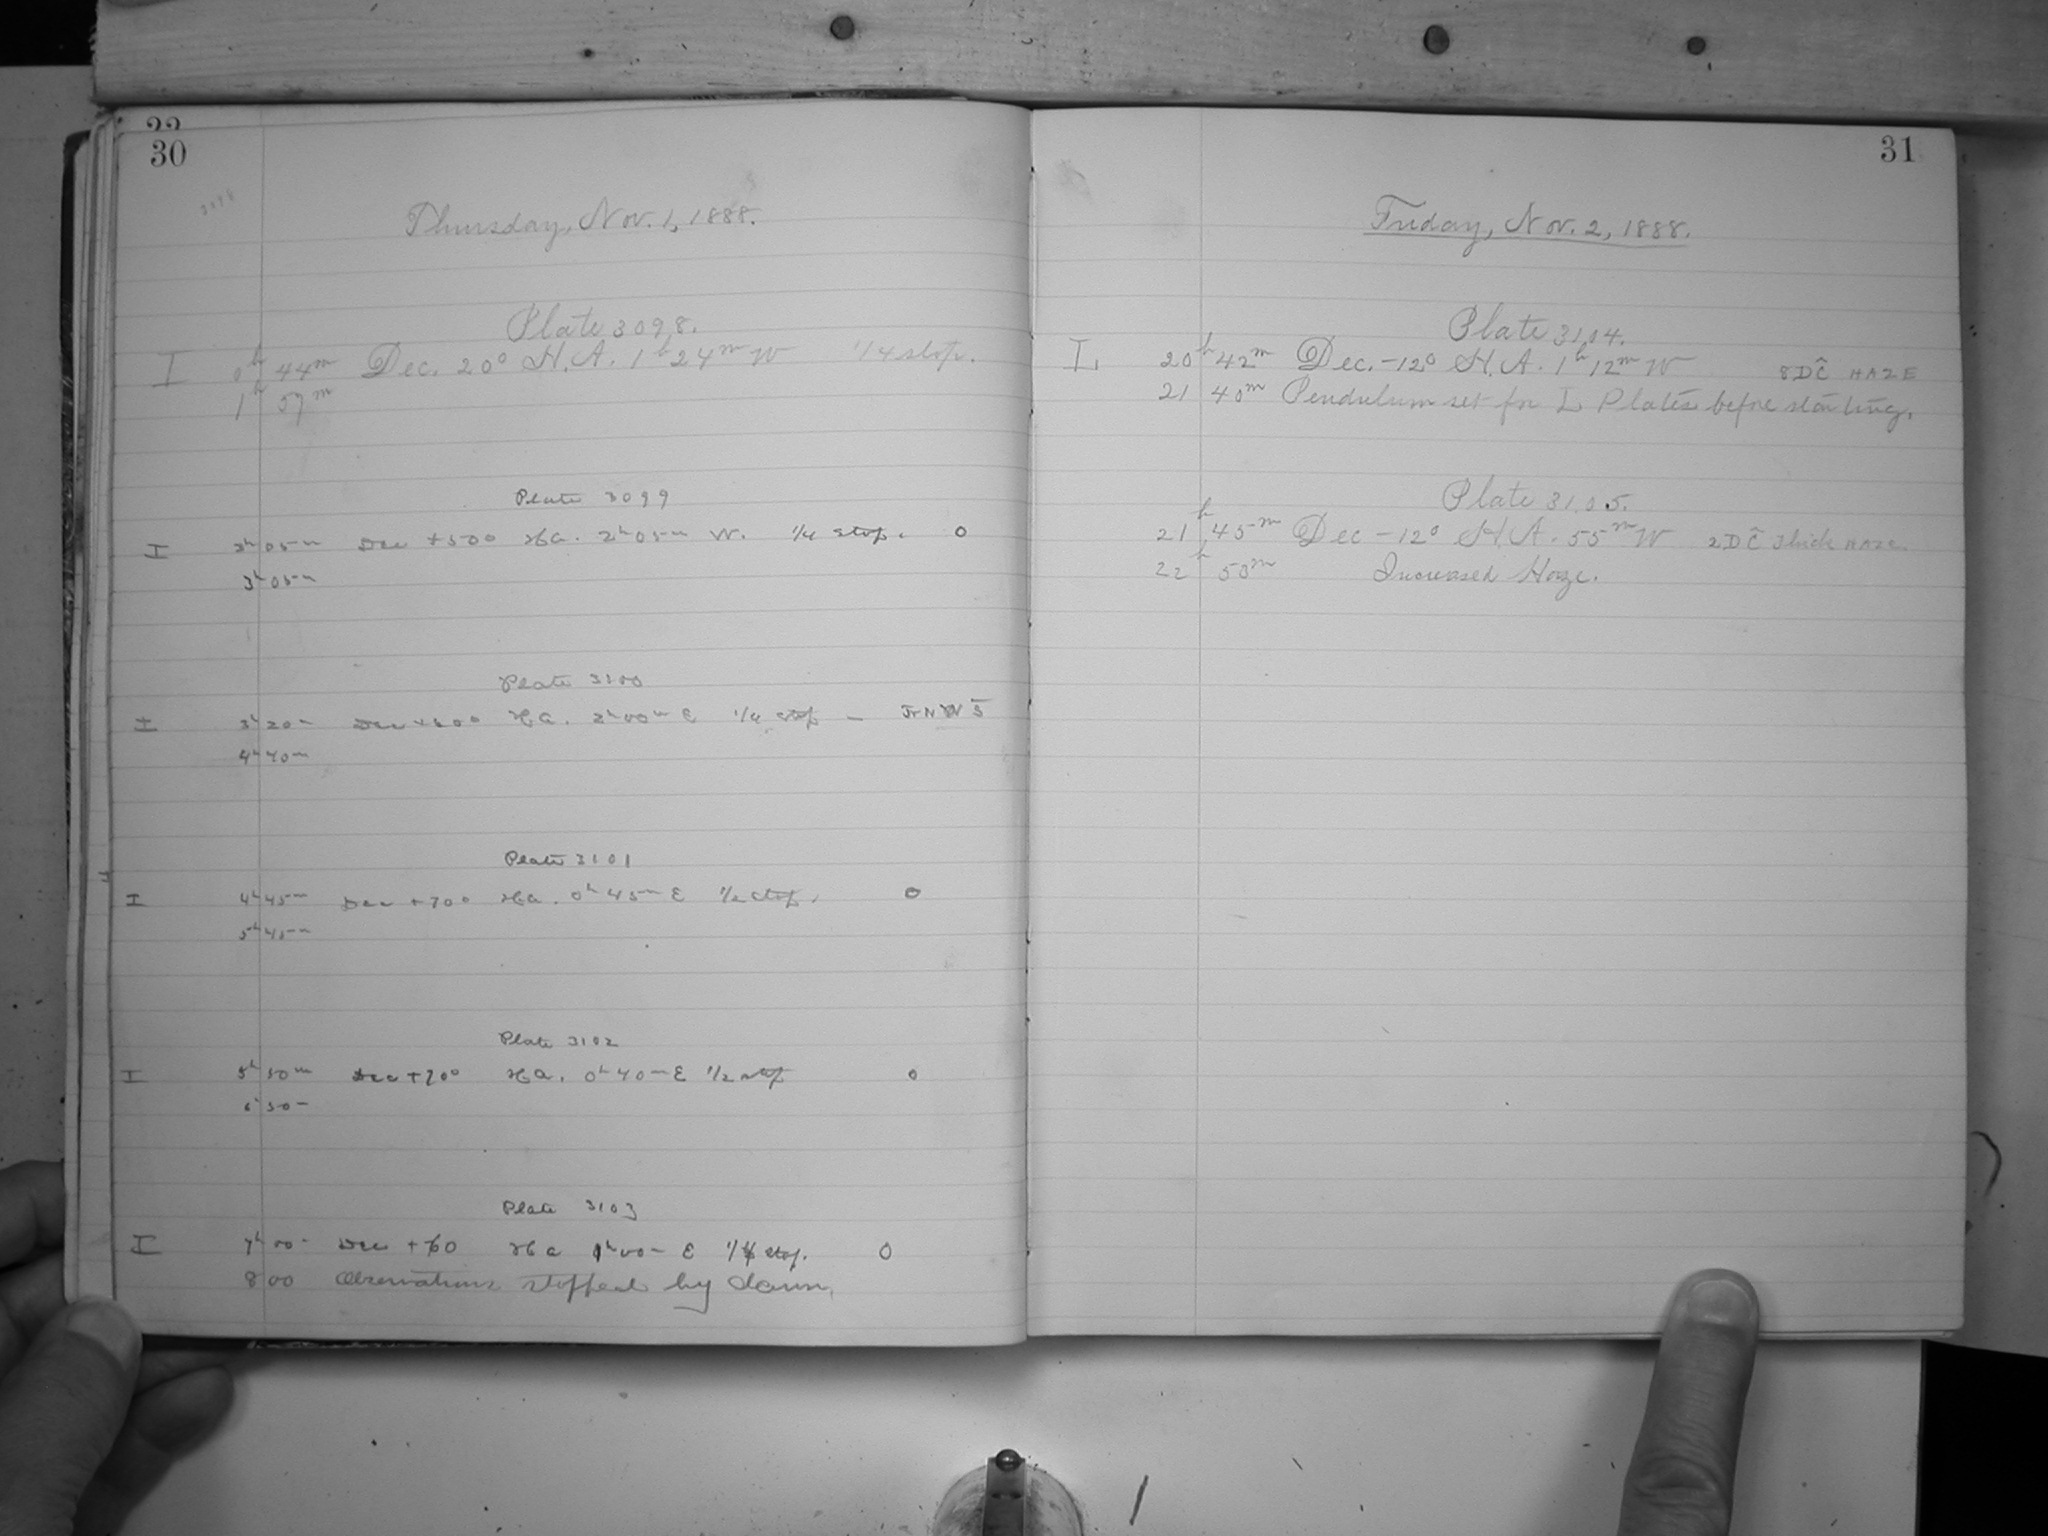 22
30
3098
Thursday, Nov. 1, 1888.
Plate 3098.
I 0h 44m Dec. 20° H.A. 1h 24m W 1/4 stop.
1h 57m
Plate 3099
I 2h 05m Dec +50° Ha. 2h 05m W. 1/4 stop. 0
3h 05m
Plate 3100
I 3h 20m Dec +60° Ha. 2h 00m E 1/4 stop —
4h 40m
Plate 3101
I 4h 45m Dec +70° Ha. 0h 45m E 1/2 stop. 0
5h 45m
Plate 3102
I 5h 50m Dec +70° Ha. 0h 40m E 1/2 stop 0
6h 50m
Plate 3103
I 7h 00m Dec +60 Ha 1h 00m E stop. 0
8 00 Observations stopped by dawn.
31
Friday, Nov. 2, 1888.
Plate 3104.
I. 20h 42m Dec. -12° H.A. 1h 12m W 8DĈ HAZE
21 40m Pendulum set for I Plates before starting.
Plate 3105.
21h 45m Dec -12° H.A. 55m W 2DĈ Thick HAZE.
22h 50m Increased Haze.